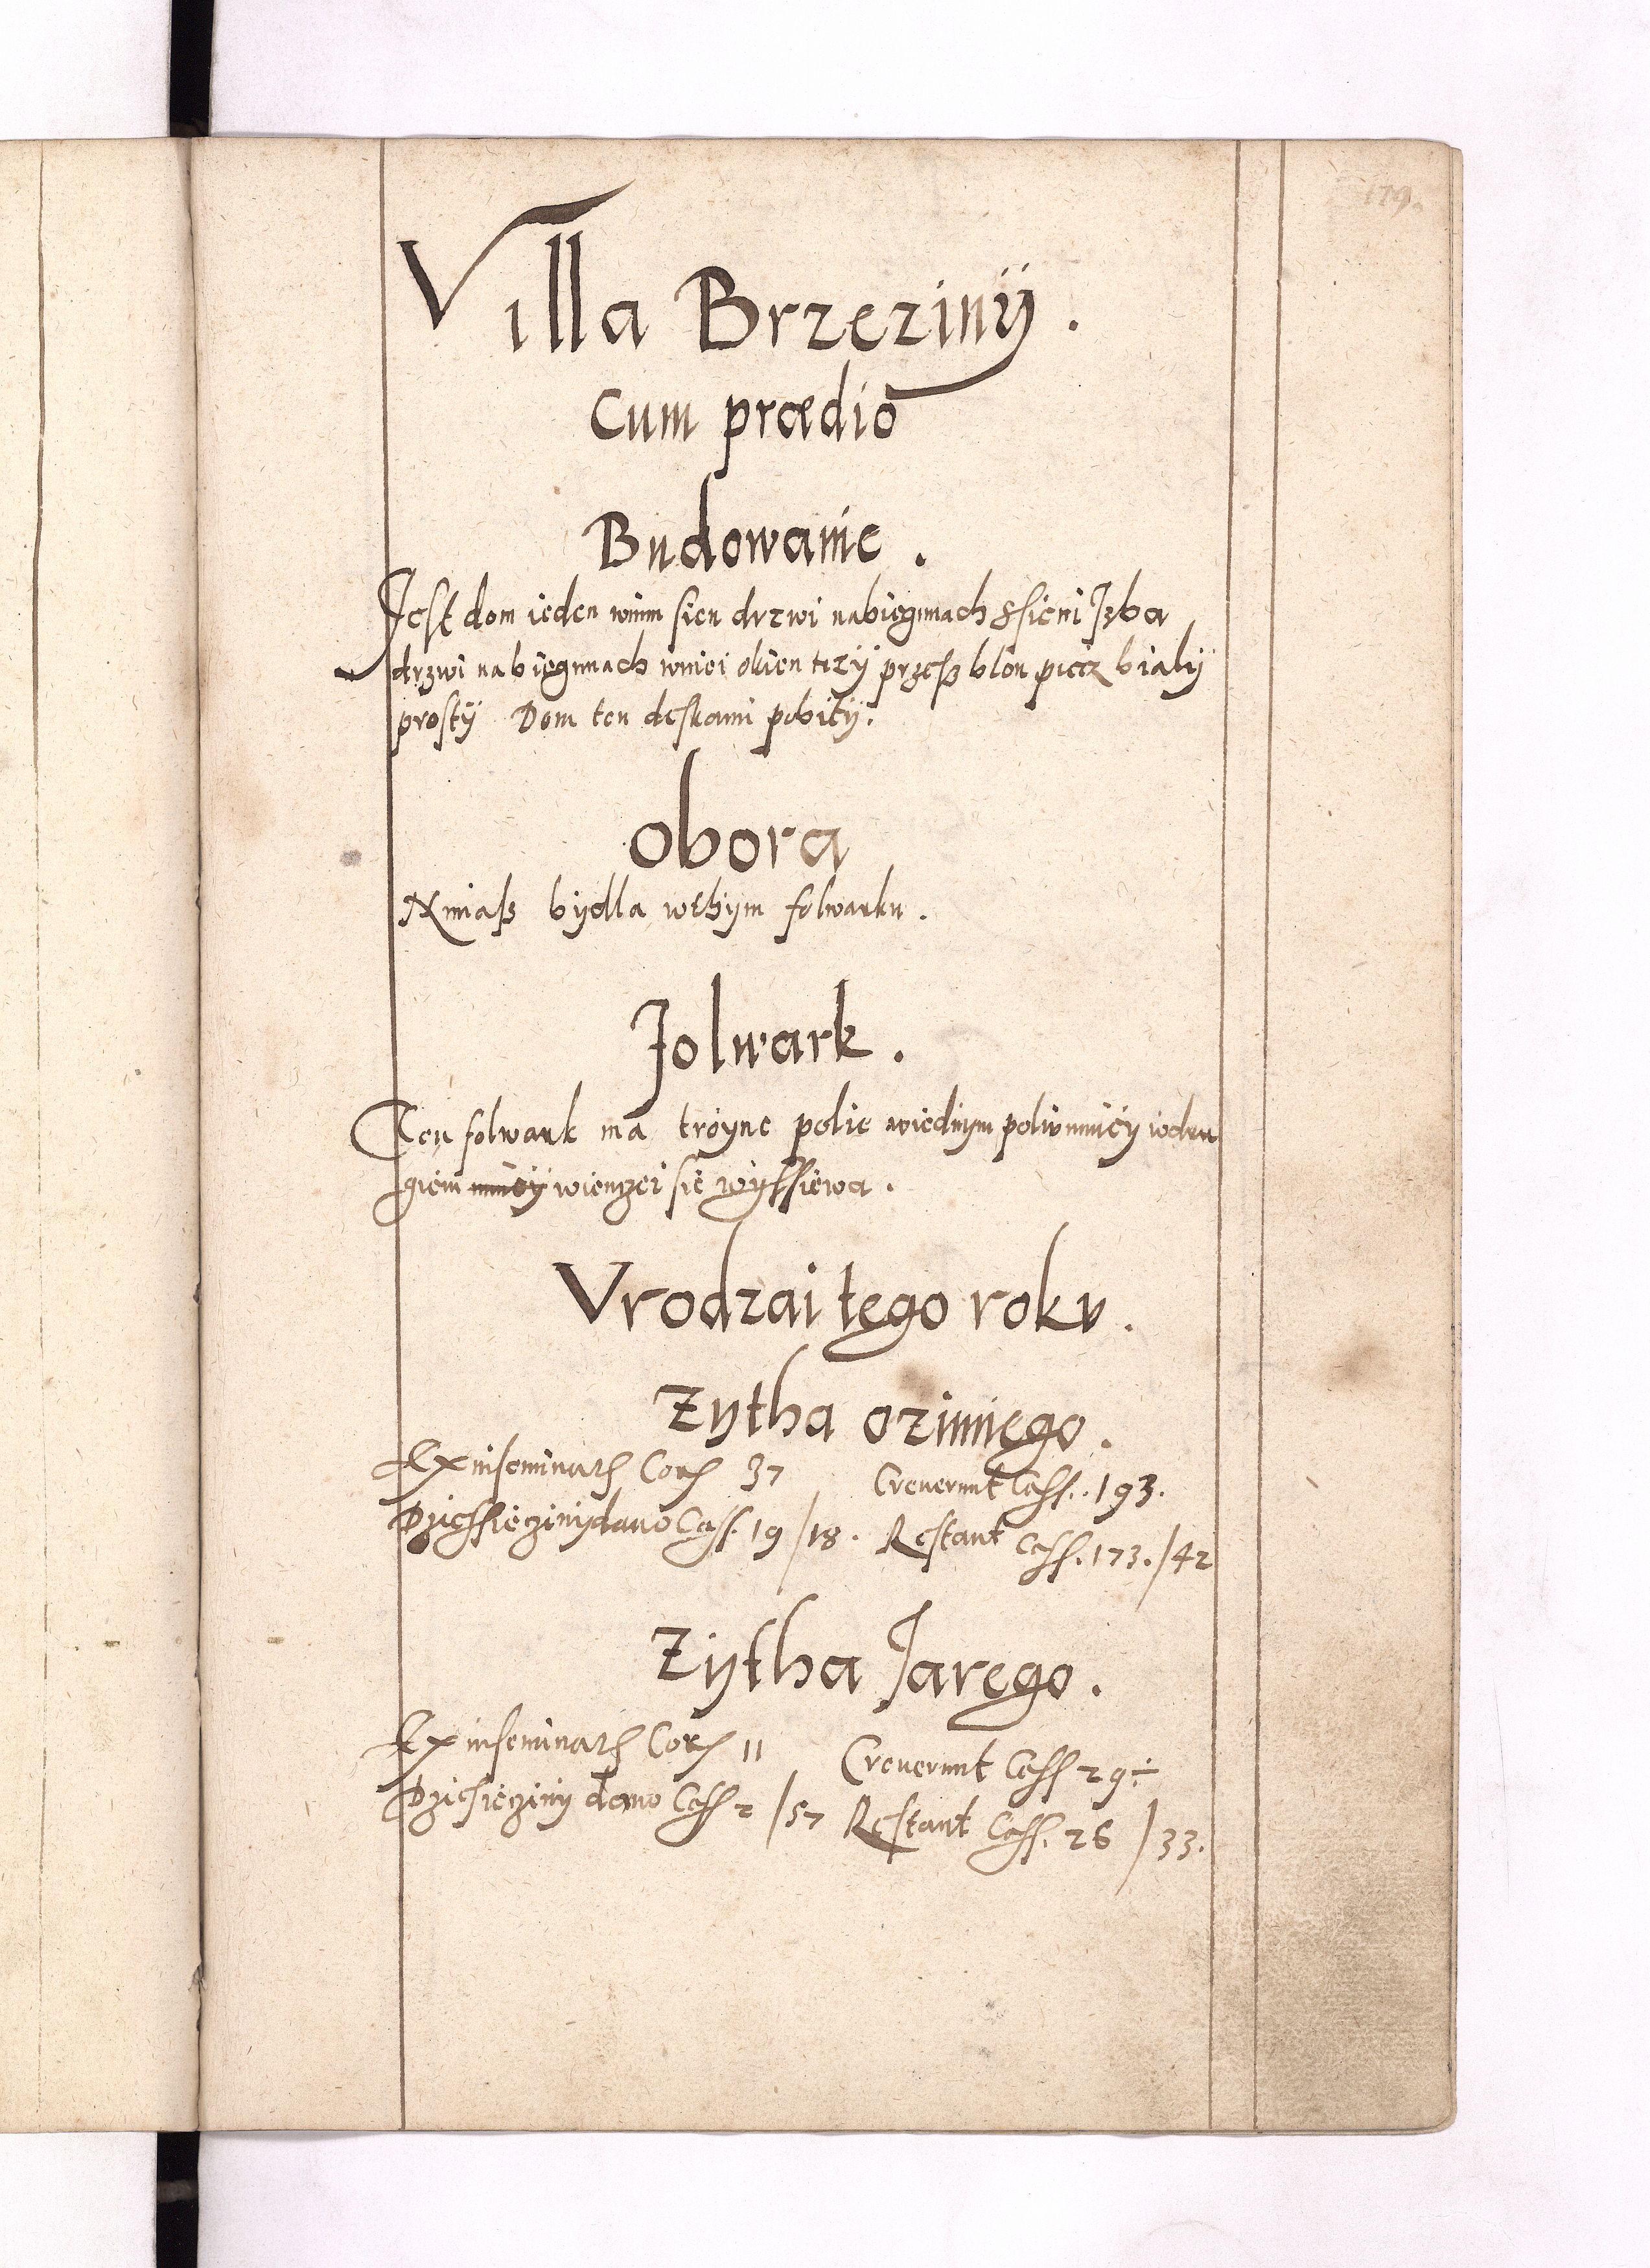 179.
Villa Brzezinÿ.
Cum prædio
Budowanie.
Jest dom ieden wnim sien drzwi nabiegunach Ssieni Jzba
drzwi nabiegunach wniei okien trzÿ przesß blon piecz bialÿ
prostÿ Dom ten deskami pobitÿ.
Obora
Nimasß bydla wthym folwarku.
Folwark.
Ten folwark ma troyne polie wiednym poliu
wienczei sie wyssiewa.
Vrodzai tego rokv.
Zytha ozimiego.
Ex inseminatis Coris 37 Creuerunt Cass. 193.
Dziessiecziny dano Cass. 19/18. Restant Cass. 173./42
Zÿtha Jarego.
Ex inseminatis Coris 11 Creuerunt Cass 29÷
Dziesieciny dano Cass 2/57 Restant Cass. 26/33.